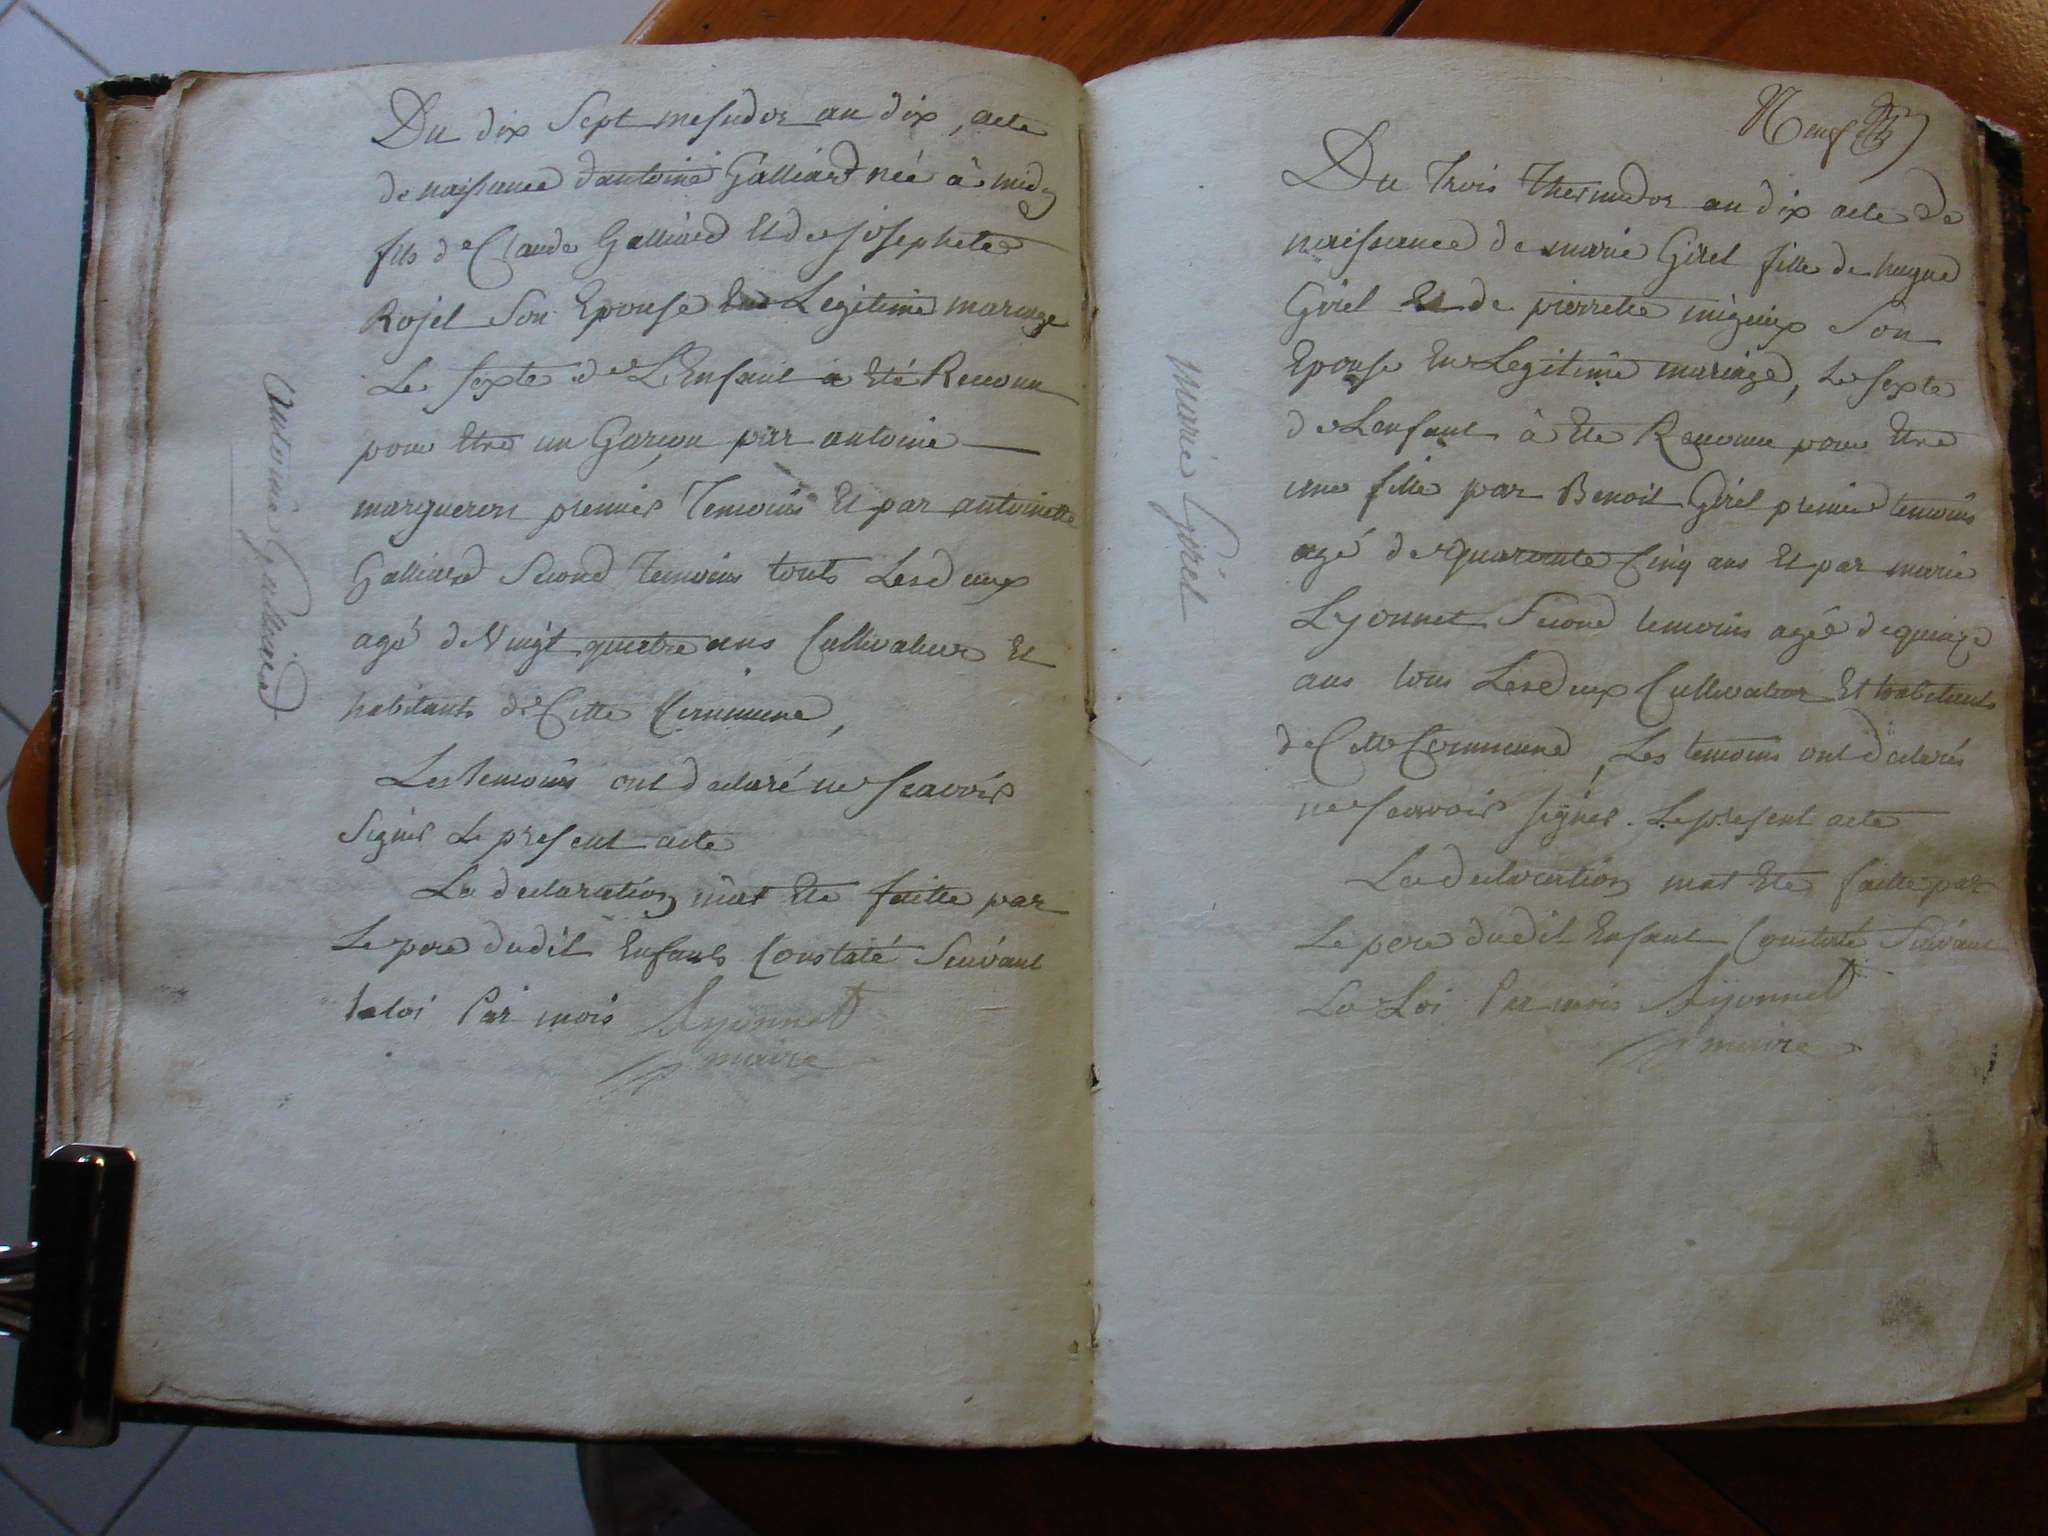 Du dix Sept mesidor an dix, acte
de naissance dantoine Galliard née à midy
fils de Claude Galliard Et de josephete
Rojel Son Epouse En Legitime mariage
Le sexte de L'Enfant à Eté Reconu
pour Etre un Garçon par antoine
margueron premier Temoins Et par antoinette
Galliard Second Temoins touts Lesdeux
agé de Vingt quatre ans Cultivateur Et
habitants de Cette Commune,
Les temoins ont declaré ne scavoir
Signer Le present acte
La declaration mat Ete faitte par
Le pere dudit Enfants Constaté Suivant
la loi Par mois Lyonnet
maire
Antoine Galliard
Neuf
Du Trois Thermidor an dix acte de
naissance de marie Girel fille de hugue
Girel Et de pierrette migieux Son
Epouse En Legitime mariage, Le sexte
de Lenfant à Ete Reconnu pour Etre
une fille par Benoit Girel premier temoins
agé de quarante Cinq ans Et par marie
Lyonnet Second temoins agée de quinze
ans tous Lesdeux Cultivateur Et habitants
de Cette Commune, Les temoins ont declarés
ne scavoir signer Le present acte
La declaration mat Ete faitte par
Le pere dudit Enfant Constaté Suivant
La Loi Par mois Lyonnet
maire
Marie Girel